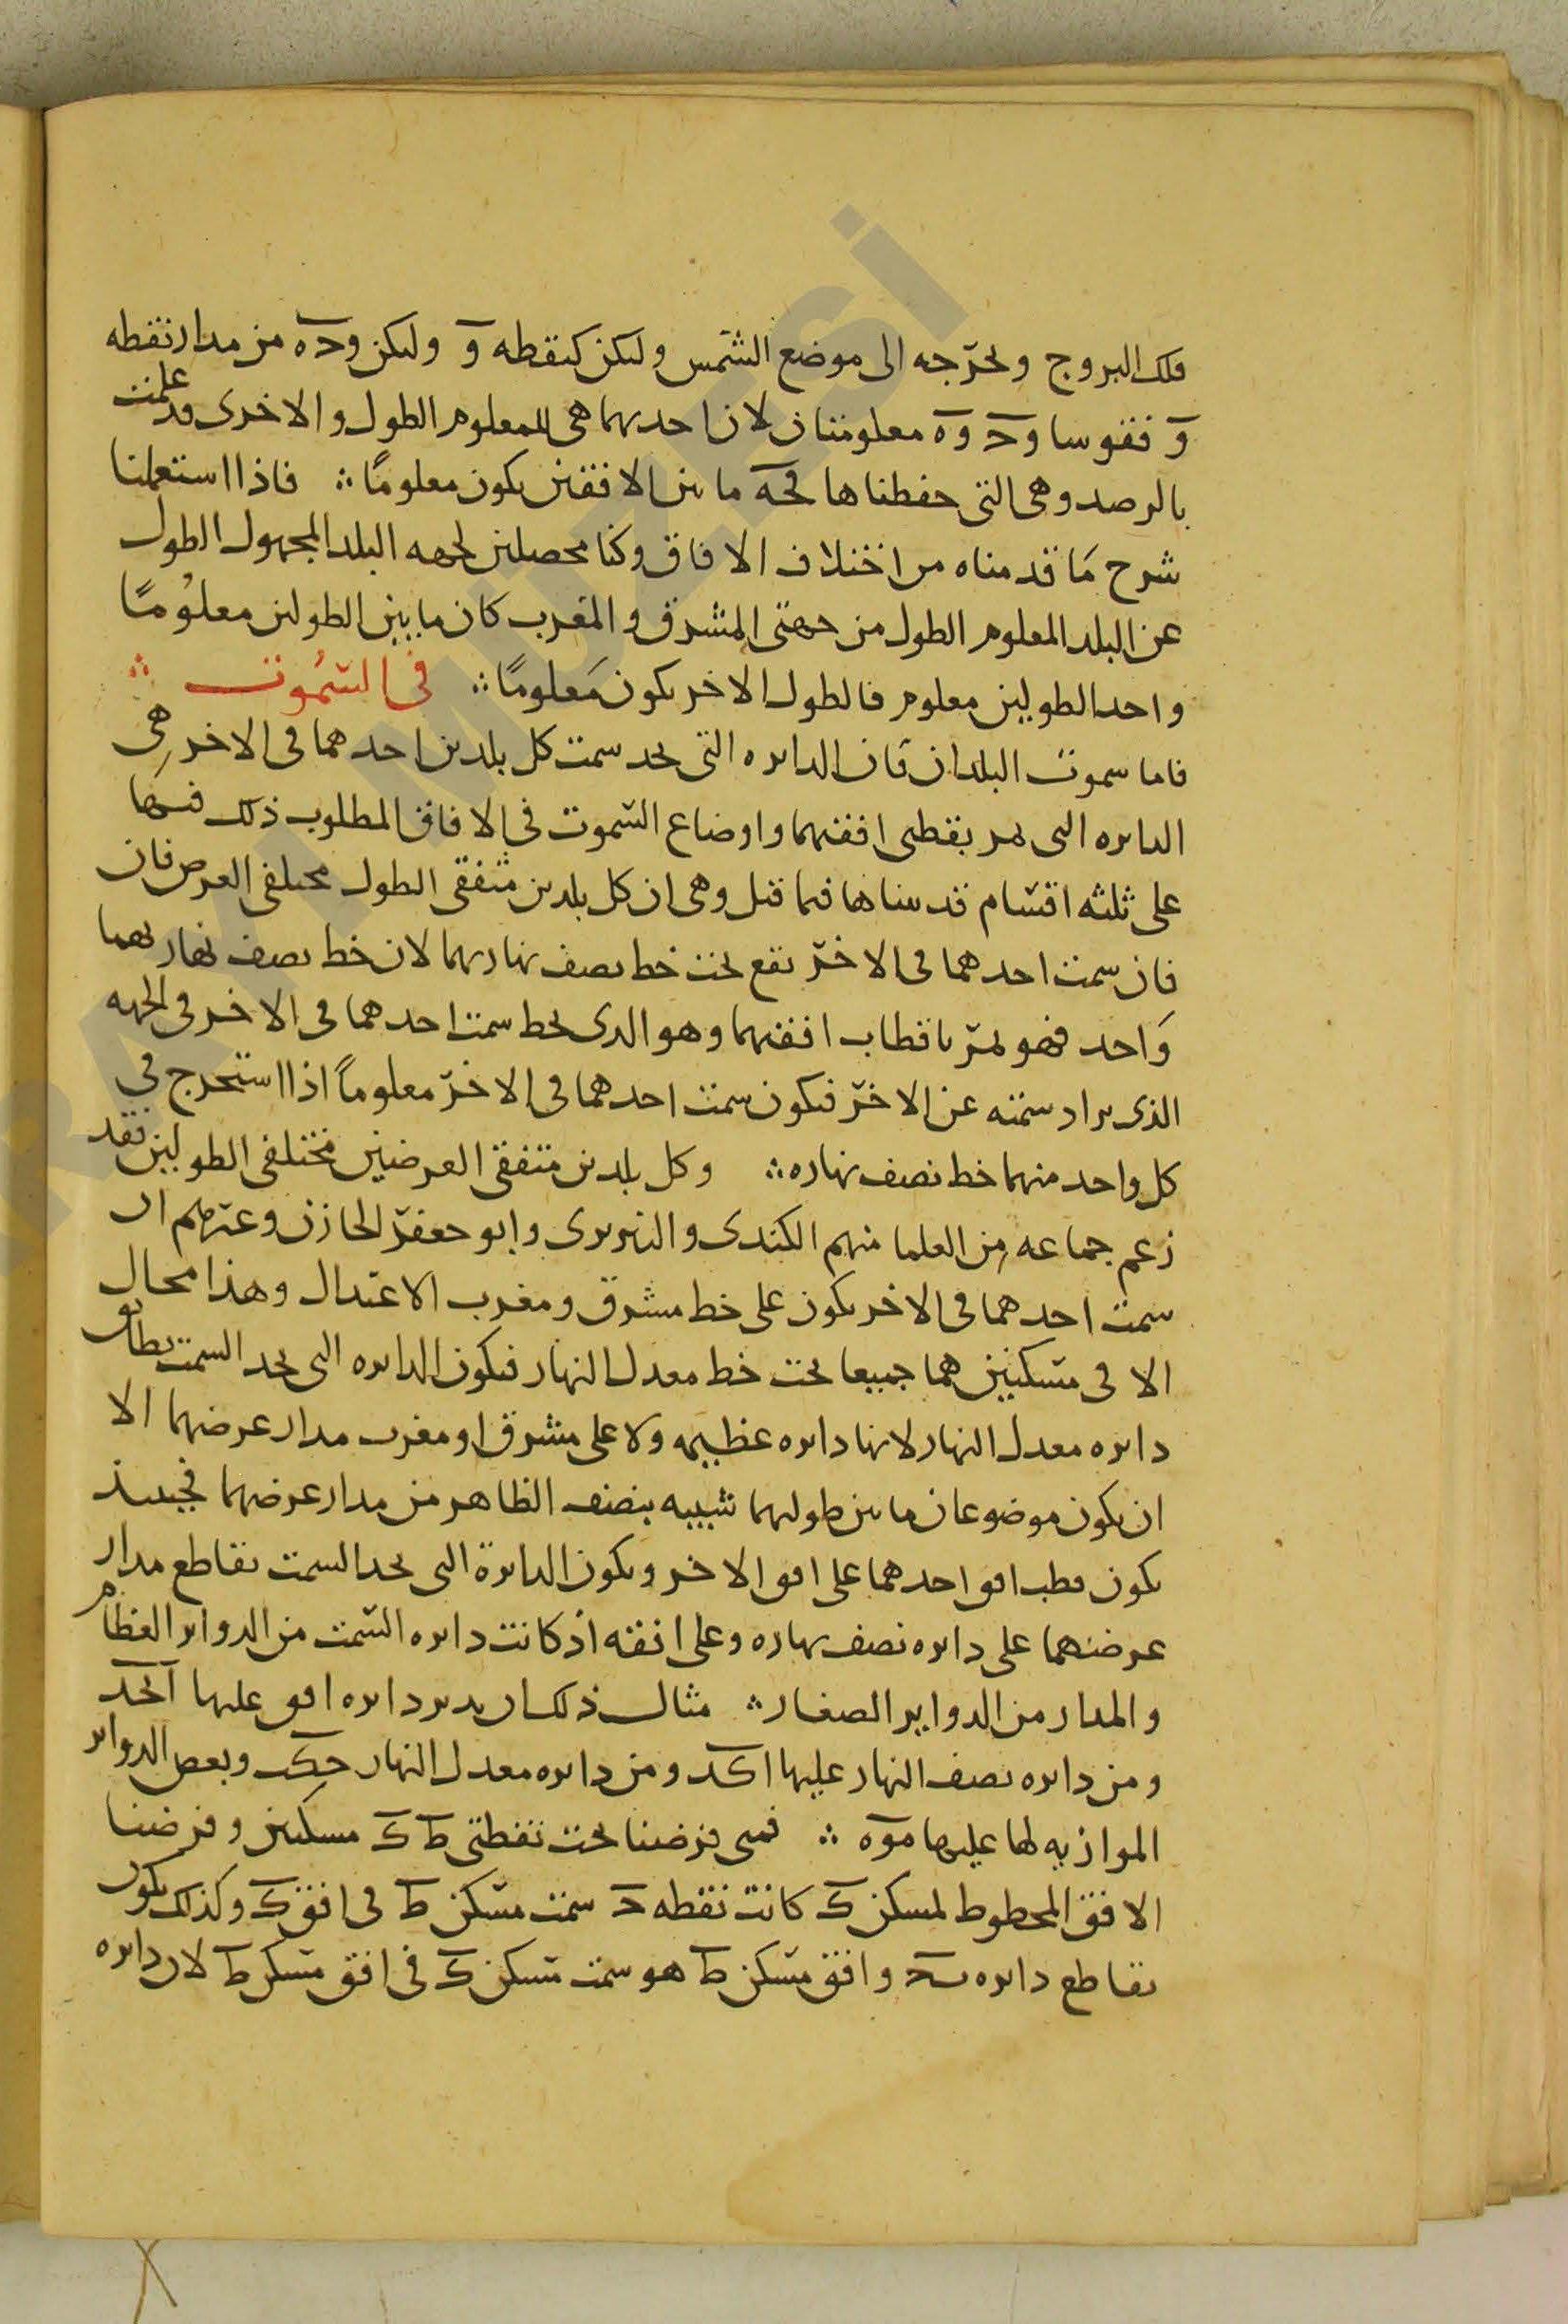 فلك البروج ونخرّجه الى موضع الشمس وليكن كنقطه و وليكن وحه من مدار نقطه
و فقوسا وح وه معلومتان لان احديهما هى للمعلوم الطول والاخرى قد علمت
بالرصد وهى التى حفظناها فحه ما بين الافقين يكون معلومًا ∴ فاذا استعملنا
شرح ما قدمناه من اختلاف الافاق وكنا محصلين لجهه البلد المجهول الطول
عن البلد المعلوم الطول من جهتى المشرق والمغرب كان ما بين الطولين معلومًا
واحد الطولين معلوم فالطول الاخر يكون معلومًا ∴ فى السّمُوت ∴
فاما سموت البلدان فان الدايره التى تحد سمت كل بلدين احدهما فى الاخر هى
الدايره التى تمر بقطبى افقيهما واوضاع السّموت فى الافاق المطلوب ذلك فيها
على ثلثه اقسام قد بيناها فيما قبل وهى ان كل بلدين متفقى الطول مختلفى العرض فان
فان سمت احدهما فى الاخر يقع تحت خط نصف نهاريهما لان خط نصف نهاريهما
واحد فهو يمرّ باقطاب افقيهما وهو الذى يخط سمت احدهما فى الاخر فى الجهه
الذى يراد سمته عن الاخر فيكون سمت احدهما فى الاخر معلوماً اذا استخرج فى
كل واحد منهما خط نصف نهاره ∴ وكل بلدين متفقى العرضين مختلفى الطولين فقد
زعم جماعه من العلما منهم الكندى والنيريزى وابو جعفر الخازن وغيرهم ان
سمت احدهما فى الاخر يكون على خط مشرق ومغرب الاعتدال وهذا محال
الا فى مسكنين هما جميعا تحت خط معدل النهار فيكون الدايره التى تحد السمت تطابق
دايره معدل النهار لانها دايره عظيمه ولا على مشرق او مغرب مدار عرضهما الا
ان يكون موضوعان ما بين طوليهما شبيه بنصف الظاهر من مدار عرضهما فحينيذ
يكون قطب افق احدهما على افق الاخر ويكون الدايرة التى تحد السمت تقاطع مدار
عرضهما على دايره نصف نهاره وعلى افقه اذ كانت دايره السّمت من الدواير العظام
والمدار من الدواير الصغار ∴ مثال ذلك ان ندير دايره افق عليها ابحد
ومن دايره نصف النهار عليها اكد ومن دايره معدل النهار حك وبعض الدواير
الموازيه لها عليها موه ∴ فمتى فرضنا تحت نقطتى ط ك مسكنين وفرضنا
الافق المخطوط لمسكن ك كانت نقطه ح سمت مسكن ط فى افق ك وكذلك يكون
تقاطع دايره وافق مسكن ط هو سمت مسكن ك فى افق مسكن ط لان دايره